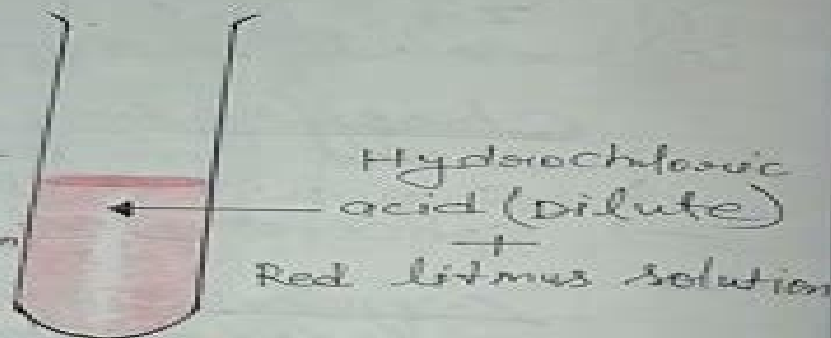 Hydrochloric
acid (Dilute)
+
Red litmus solution